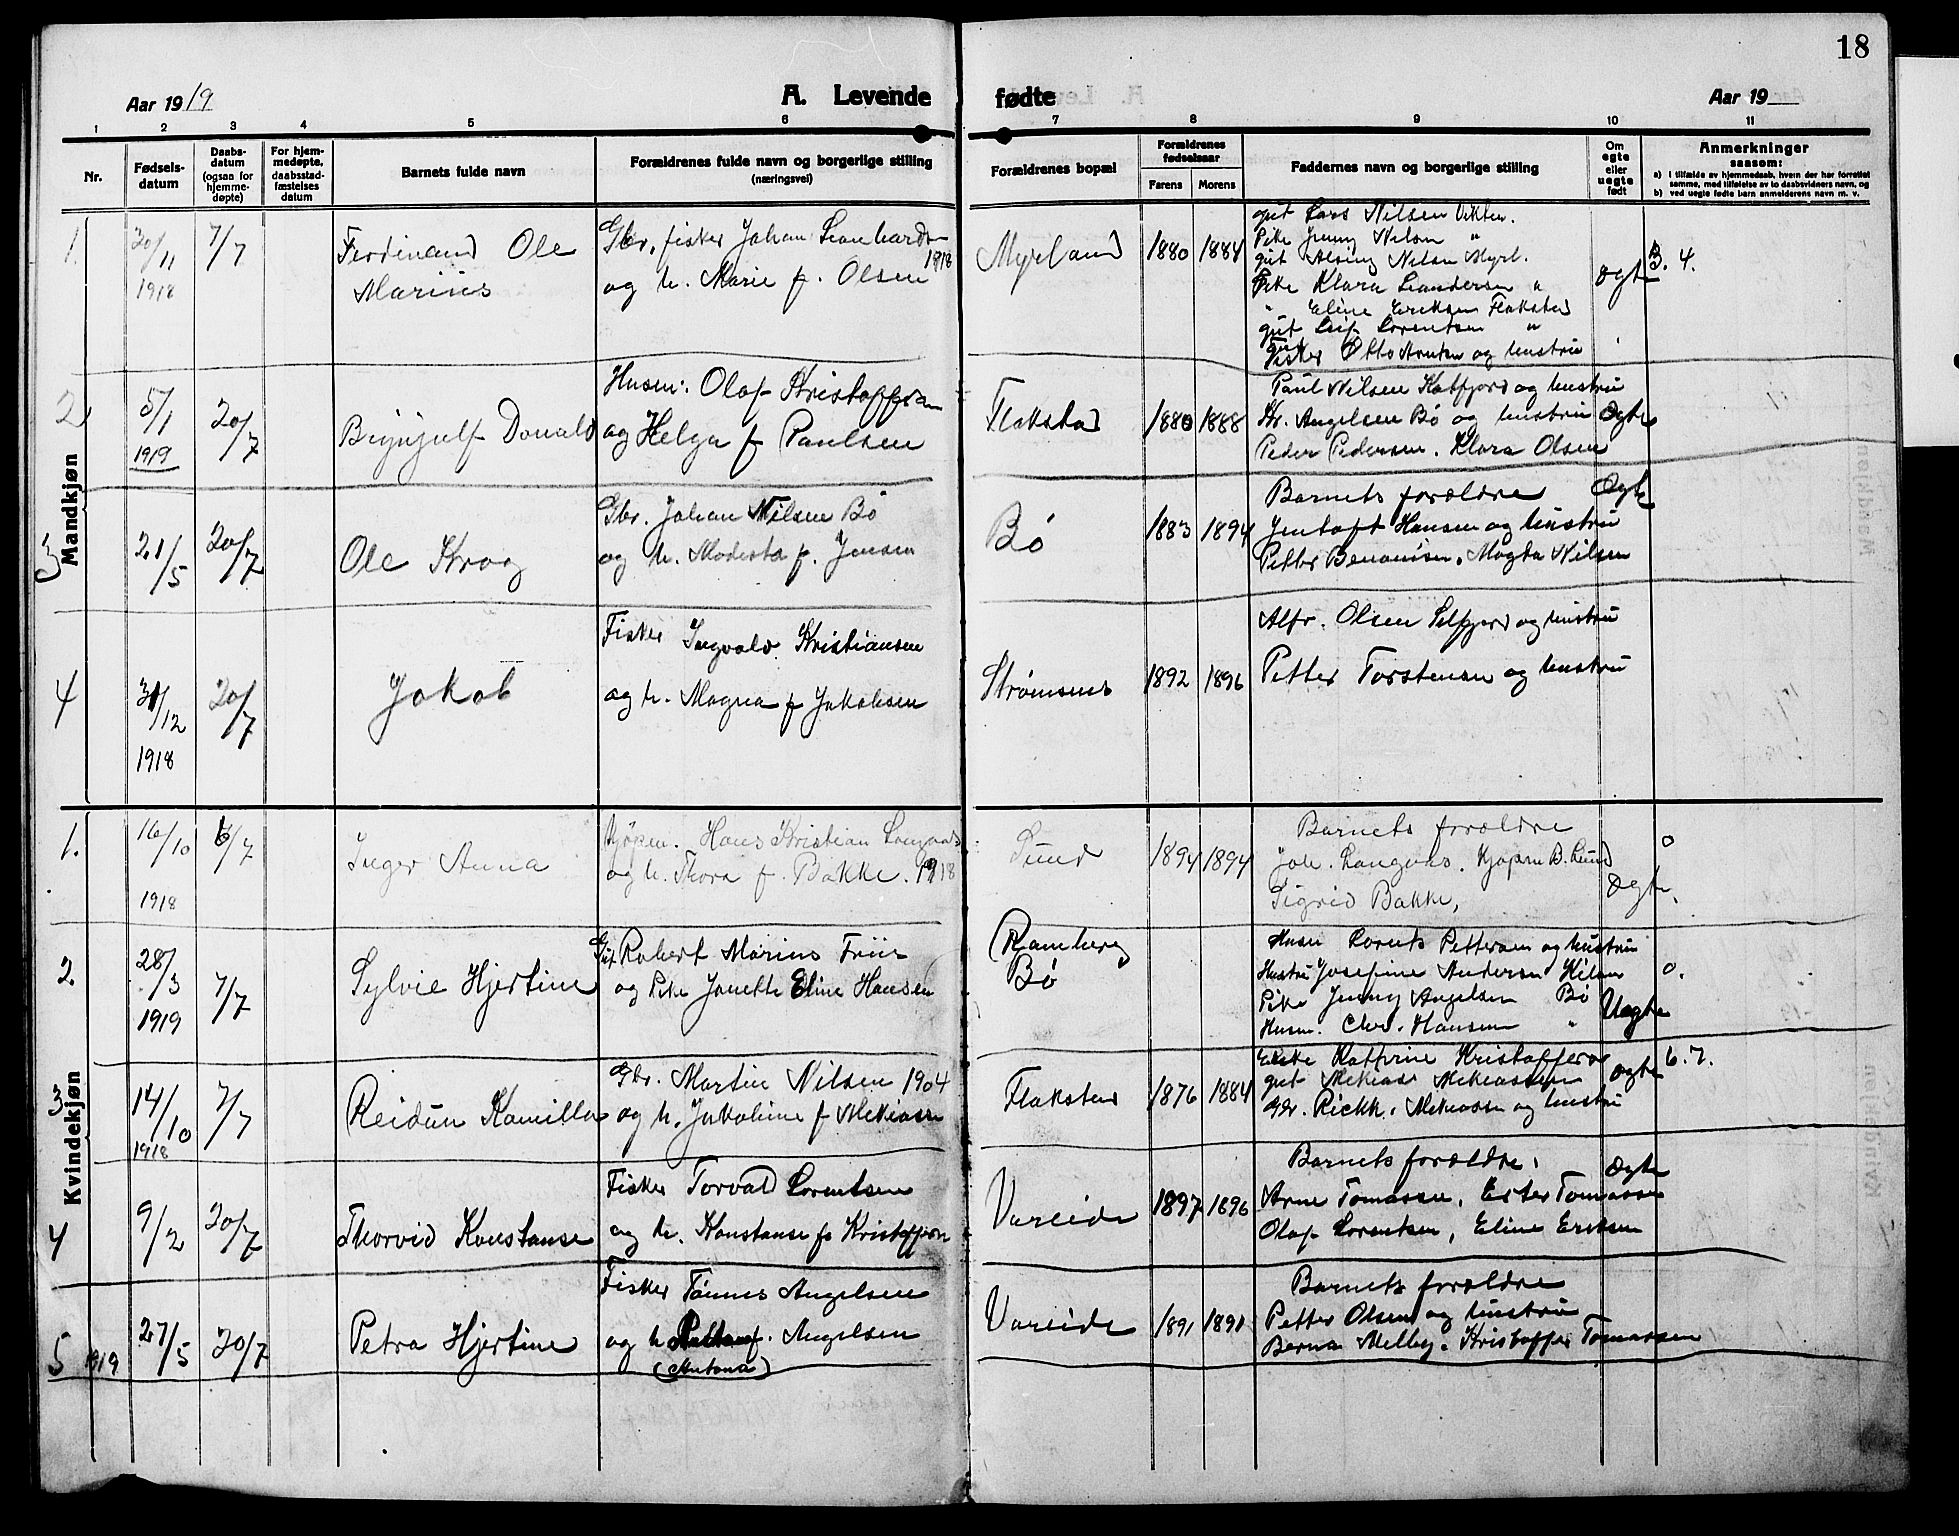 18
Aar 1919
A. Levende
fødte
Aar 19
1 2 3 4 5 6 7 8 9 10 11
Nr.
Fødsels-
datum
Daabs-
datum
(ogsaa for
hjemme-
døpte)
For hjem-
medøpte,
daabsstad-
fæstelses
datum
Barnets fulde navn
Forældrenes fulde navn og borgerlige stilling
(næringsvei)
Forældrenes bopæl
Forældrenes
fødselsaar
Farens Morens
Faddernes navn og borgerlige stilling
Om
egte
eller
uegte
født
Anmerkninger
saasom:
a) i tilfælde av hjemmedaab, hvem der har forrettet
samme, med tilføielse av to daabsvidners navn, og
b) ved uegte fødte barn anmelderens navn m. v.
Mandkjøn
1.
30/11
1918
7/7
Ferdinand Ole
Marius
Gbr. fisker Johan Leonhardsen
1918
og h. Marie f. Olsen
Myrland
1880 1884
gut Lars Nilsen Vikten.
Pike Jenny Nilsen "
gut Nilsen Myrl.
Pike Klara Leandersen "
" Eline Eriksen Flakstad
gut Leif Lorentsen "
Fisker Otto og hustru
ægte
3. 4.
2
5/1
1919
20/7
Donald
Husm. Olaf Kristoffersen
og Helga f Paulsen
Flakstad
1880 1888
Paul Nilsen Katfjord og hustru
Kr. Angelsen Bø og hustru
Peder Pedersen. Klara Olsen
Ægte
3
21/5
20/7
Ole Krog
Gbr. Johan Nilsen Bø
og h. Modesta f. Jensen
Bø
1883 1894
Barnets forældre
Jentoft Hansen og hustru
Petter Benonisen. Magda Nilsen
Ægte
4
31/12
1918
20/7
Jakob
Fisker Ingvald Kristiansen
og h. Magna f Jakobsen
Strømsnes
1892 1896
Alfr. Olsen Selfjord og hustru
Petter Torstensen og hustru
Kvindekjøn
1.
16/10
1918
6/7
Inger Anna
Kjøpm. Hans Kristian Langaas
og h. Thora f. Bakke. 1918
Sund
1894 1894
Barnets forældre
Joh. Langaas. Kjøpm B. Lund
Sigrid Bakke,
Ægte.
0
2.
28/3
1919
7/7
Sylvie Hjertine
Gut Robert Marius Friis
og Pike Janette Eline Hansen
Ramberg
Bø
Husm Lornts Pettersen og hustru
Hustru Josefine Andersen Kilan
Pike Jenny Angelsen Bø
Husm. Chr. Hansen "
Uægte
0.
3
14/10
1918
7/7
Reidun Kamilla
Gbr. Martin Nilsen 1904
og h. Jakobine f Mekiassen
Flakstad
1876 1884
Enke Katrine Kristoffersen
gut Mekias Mekiassen
Gbr. Rickh. Mekiassen og hustru
ægte
6. 7.
4
9/2
20/7
Thorvid Konstanse
Fisker Torvald Lorentsen
og h. Konstanse f. Kristoffersen
Vareide
1897 1896
Barnets forældre.
Arne Tomassen, Ester Tomassen
Olaf Lorentsen, Eline Eriksen
Ægte
5
1919
27/5
20/7
Petra Hjertine
Fisker Tønnes Angelsen
og h f. Angelsen
(Antona)
Vareide
1891 1891
Barnets forældre
Petter Olsen og hustru
Berna Melby. Kristoffer Tomassen